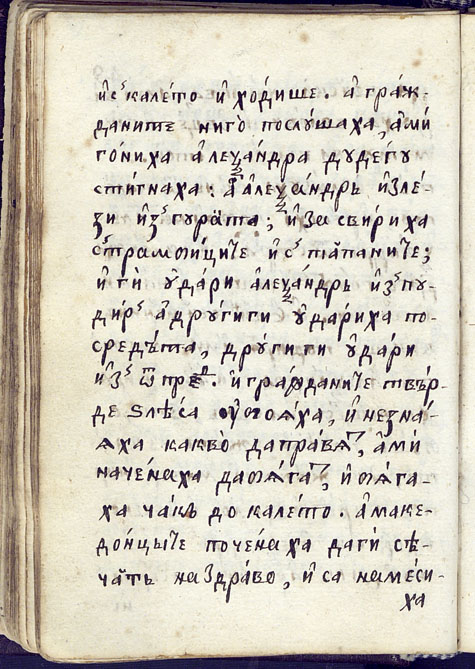 и҆с̾ кале́то и҆ хо́дише. а҆ гра́ж-
даните ниго̀ послꙋ́шаха, а҆мѝ
го́ниха а҆леѯа́ндра дꙋдегꙋ
стѝгнаха: а҆ а҆леѯа́ндръ и҆зле́-
зи и҆з̾ гꙋра́та; и҆ засвѝриха
с̾ трамби́ците и҆ с̾ тꙋ́паните;
и҆ гѝ ᲂу҆да́ри а҆леѯа́ндръ и҆з̾ пꙋ-
ди́р̾ а҆ дрꙋ́гиги ᲂу҆да́риха по-
средѣ́та, дрꙋ́гити ᲂу҆да́ри
и҆з̾ ѿпре́д. и҆ гражданите твър-
де ѕлѣ́са ᲂу҆боѧ́ха, и҆ незна́-
ѧха какво̀ дапра́вѧт, а҆мѝ
наче́наха дабѧ́гат, и҆ бѧга-
ха ча́къ до кале́то. а҆ маке-
до́нцыте поче́наха даги́ сѣ-
ча́тъ на здра́во, и҆ са наме́си-
ха